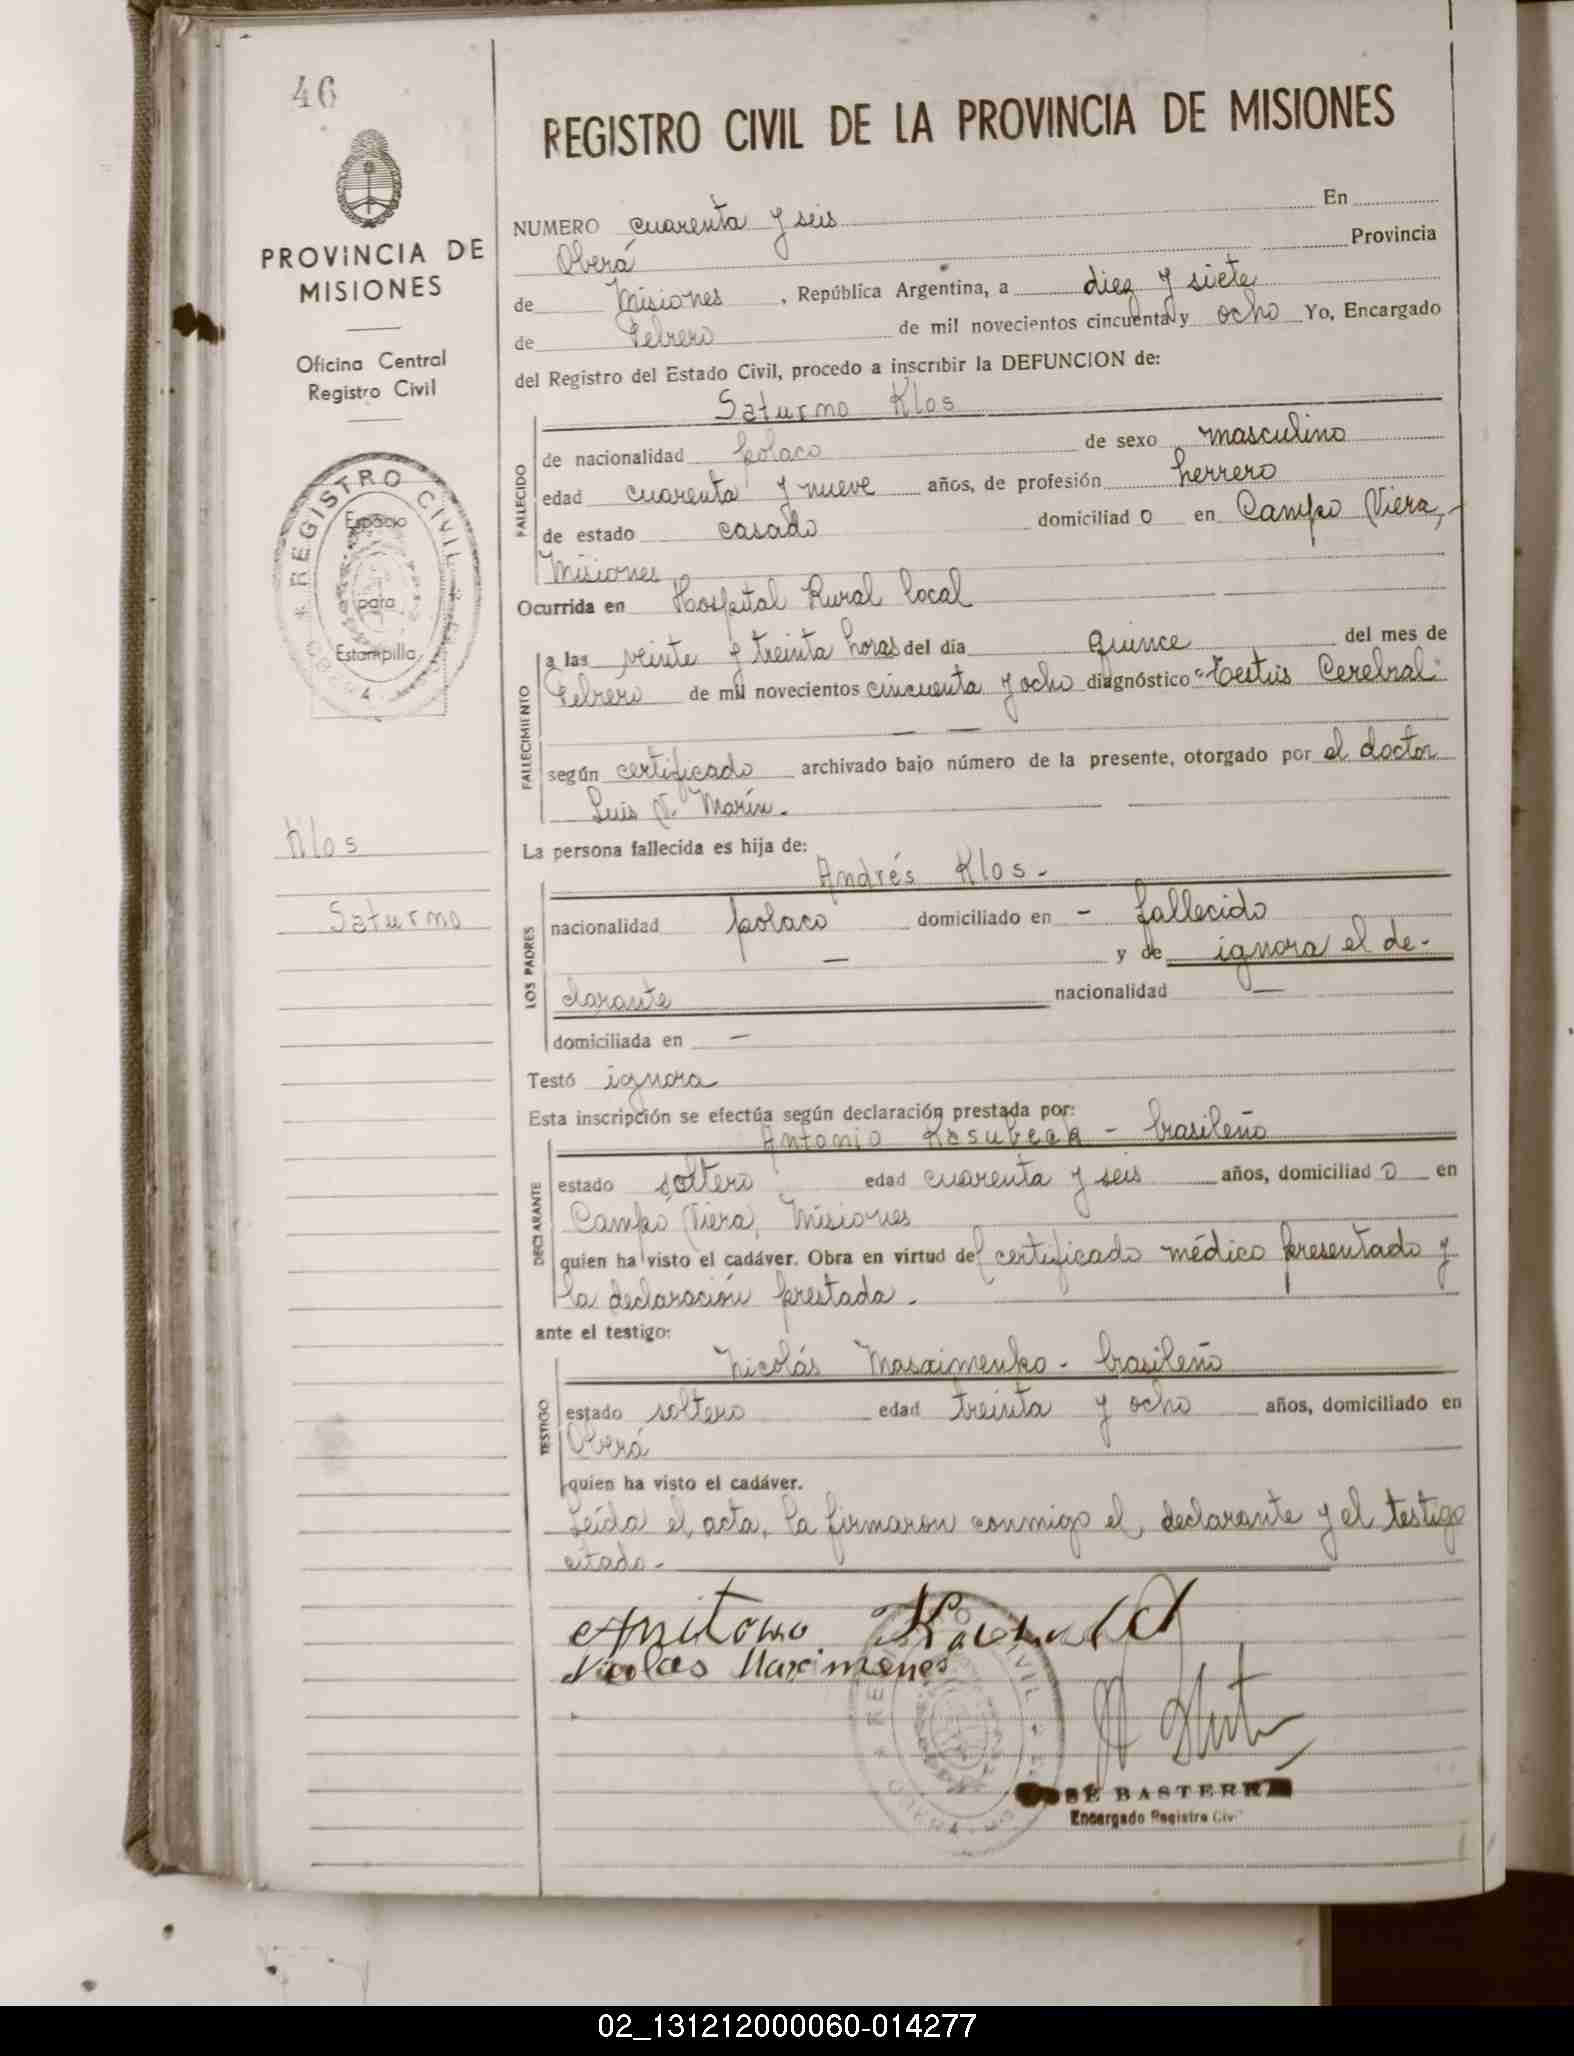 46
PROVINCIA DE
MISIONES
Oficina Central
Registro Civil
REGISTRO CIVIL
Espacio
para
Estampilla
Klos
Saturno
REGISTRO CIVIL DE LA PROVINCIA DE MISIONES
NUMERO cuarenta y seis En
Oberá Provincia
de Misiones, República Argentina, a diez y siete
de Febrero de mil novecientos cincuenta y ocho Yo, Encargado
del Registro del Estado Civil, procedo a inscribir la DEFUNCION de:
Saturno Klos
FALLECIDO
de nacionalidad polaco de sexo masculino
edad cuarenta y nueve años, de profesión herrero
de estado casado domiciliado en Campo Viera,-
Misiones
Ocurrida en Hospital Rural local
FALLECIMIENTO
a las veinte y treinta horas del día quince del mes de
Febrero de mil novecientos cincuenta y ocho diagnóstico "Cerebral"
— —
según certificado archivado bajo número de la presente, otorgado por el doctor
Luis V. Marín.
La persona fallecida es hija de:
Andrés Klos.-
LOS PADRES
nacionalidad polaco domiciliado en - fallecido
— y de ignora el de-
clarante nacionalidad —
domiciliada en —
Testó ignora
Esta inscripción se efectúa según declaración prestada por:
Antonio - brasileño
DECLARANTE
estado soltero edad cuarenta y seis años, domiciliado en
Campo Viera, Misiones
quien ha visto el cadáver. Obra en virtud del certificado médico presentado y
la declaración prestada.
ante el testigo:
Nicolás Masximenko - brasileño
TESTIGO
estado soltero edad treinta y ocho años, domiciliado en
Oberá
quien ha visto el cadáver.
Leída el acta, la firmaron conmigo el declarante y el testigo
citado.-
Antonio
Nicolas Maximenco
SÉ BASTERRA
Encargado Registro Civ
02_131212000060-014277